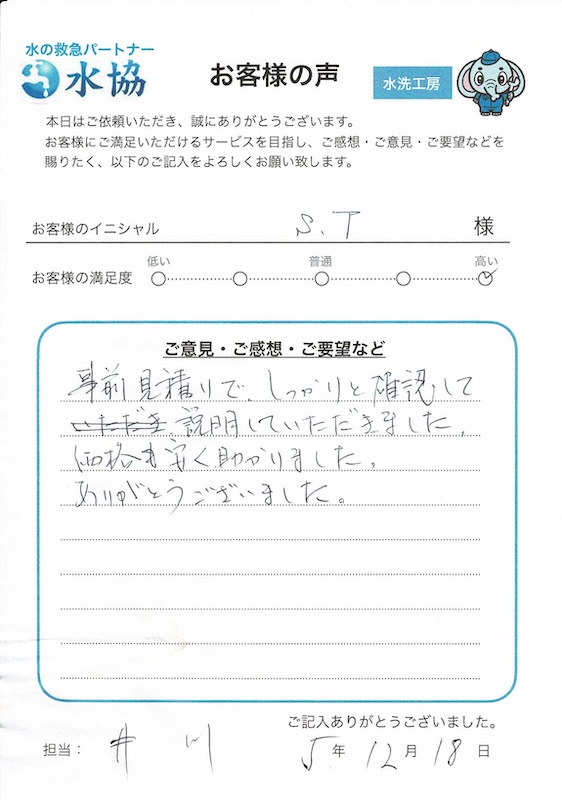 水の救急パートナー
水協
お客様の声
水洗工房
本日はご依頼いただき、誠にありがとうございます。
お客様にご満足いただけるサービスを目指し、ご感想・ご意見・ご要望などを
賜りたく、以下のご記入をよろしくお願い致します。
お客様のイニシャル S.T 様
低い 普通 高い
お客様の満足度
ご意見・ご感想・ご要望など
事前見積りで、しっかりと確認して
いただき説明していただきました。
価格も安く助かりました。
ありがとうございました。
ご記入ありがとうございました。
担当： 井川 5年12月18日